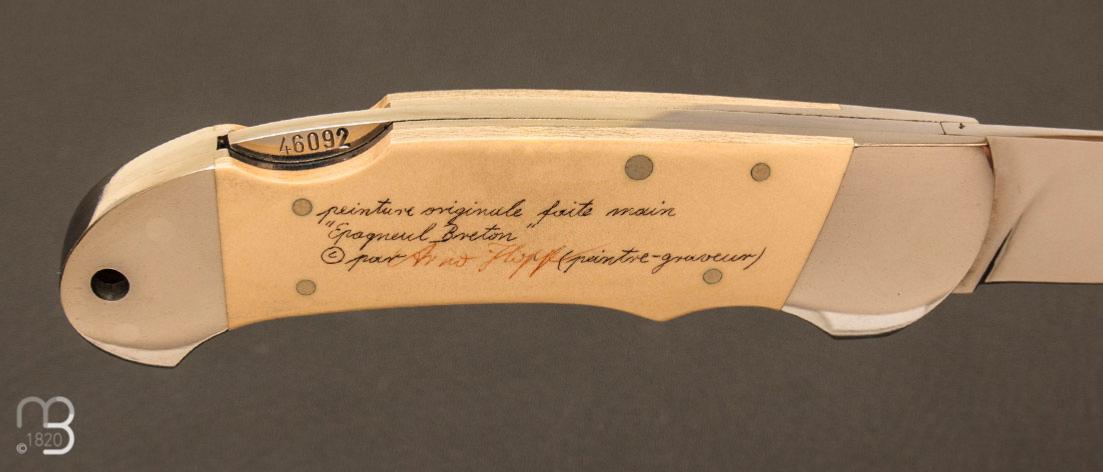 46092
peinture originale faite main
"Epagneul Breton"
© par Arno Hopp (peintre-graveur)
mB
© 1820